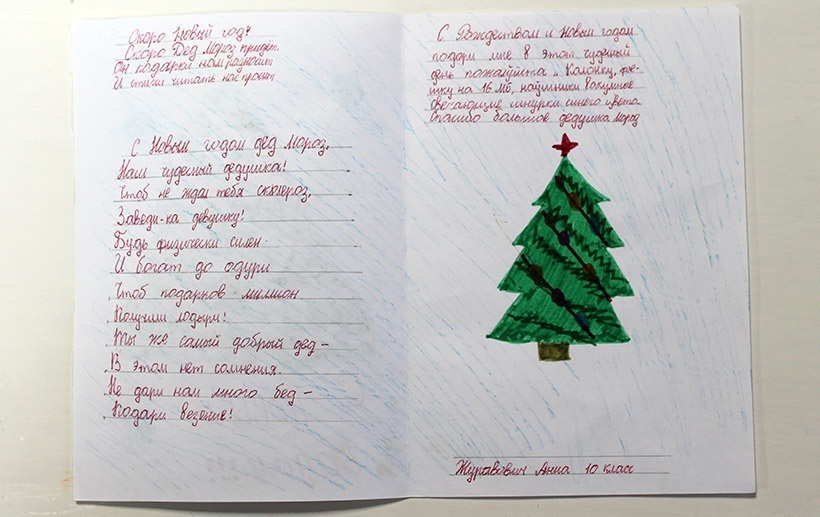 Скоро Новый год!
Скоро Дед Мороз придет.
Он подарки нам разносит
И стихи читать нас просит
С Новым годом дед Мороз,
Наш чудесный дедушка!
Чтоб не ждал тебя склероз,
Заведи-ка девушку!
Будь физически силен
И богат до одури
Чтоб подарков миллион
Получили лодыри!
Ты же самый добрый дед –
В этом нет сомнения.
Не дари нам много бед –
Подари везение!
С Рождеством и Новым годом
подари мне в этот чуденый
день пожалуйста „ Колонку, фле-
шку на 16 Мб, наушники вакумные
светающие шнурки синего цвета.
Спасибо большое дедушка Мороз
Журавович Анна 10 класс